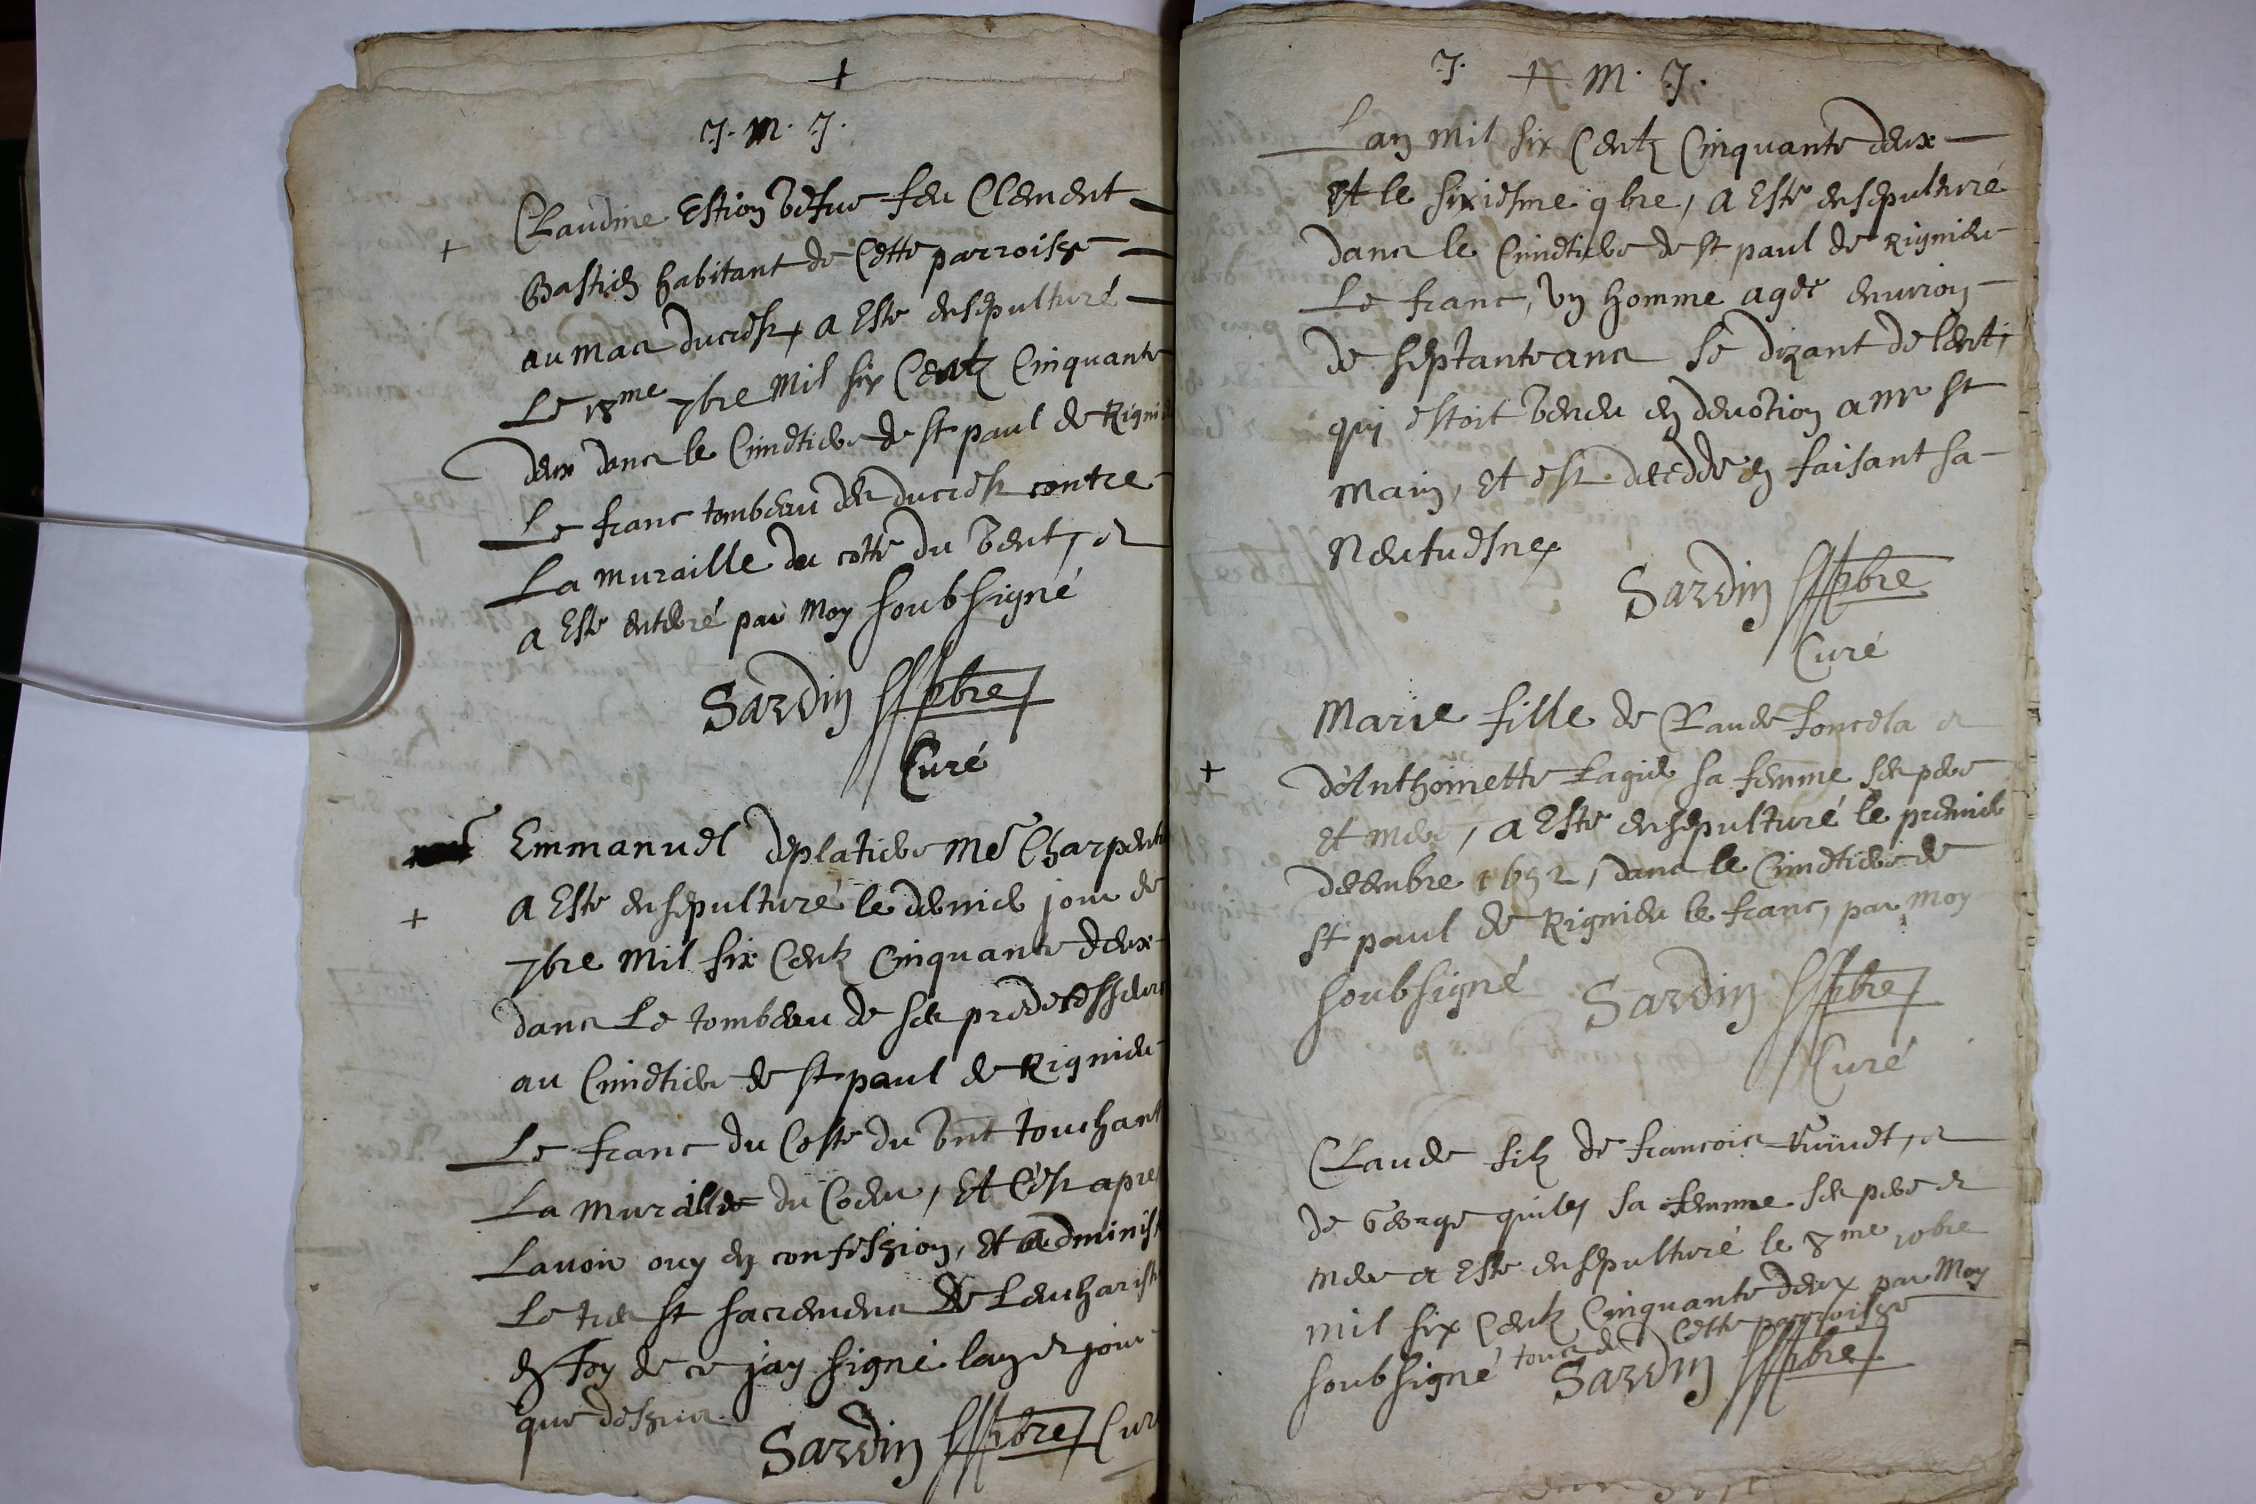 +
J. M. J.
Claudine Estion vefve feu Clement
+ Bastien habitant de Cette parroisse
au mas ducrest, a Este ensepulturé
Le 18me 7bre Mil six Centz Cinquante
deux dans le Cimetiere de st paul de Rignieu
Le franc tombeau des ducrest contre
La muraille du cotté du vent, et
a Este enterré par Moy soubsigné
Sardin pbre
Curé
Emmanuel deplatiere Me Charpentier
+ a Este ensepulturé le dernier jour de
7bre Mil six Centz Cinquante deux
dans Le tombeau de ses predecesseurs
au Cimetiere de st paul de Rignieu
Le franc du Costé du vent touchant
La muraille du Coeur, Et C'est apres
Lavoir ouy en confession, Et administ
Le tres st sacrement de Leucharistie
En foy de ce j'ay signé lan et jour
que dessus.
Sardin pbre Curé
J. + M. J.
Lan Mil six Centz Cinquante deux
Et le sixiesme 9bre, a Esté ensepulturé
dans le Cimetiere de st paul de Rignieu
Le franc, un homme agée environ
de septante ans se dizant de lenti
qui estoit venu en devotion a Mr st
Main, Et est decedde en faisant sa
Neufuesne
Sardin pbre
Curé
Marie fille de Claude foncela et
+ d'Anthoinette Lagier sa femme ses pere
Et mere, a Este ensepulturé le premier
decembre 1652, dans le Cimetiere de
st paul de Rignieu le franc, par Moy
soubsigné Sardin pbre
Curé
Claude filz de francois, et
de George sa femme ses pere et
mere a Este ensepulturé le 8me 10bre
mil six Centz Cinquante deux par Moy
soubsigné tous de Cette parroisse
Sardin pbre